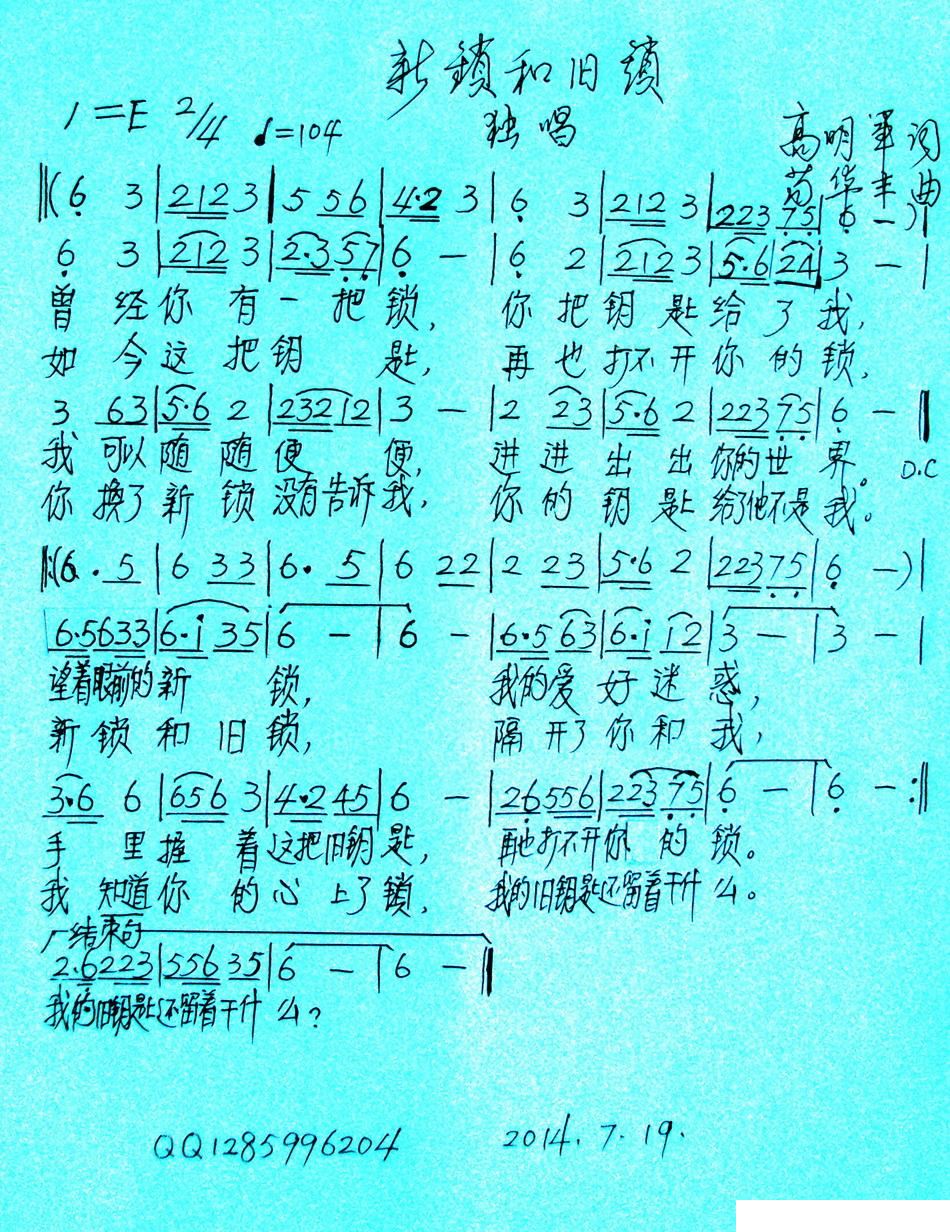 新鎖和旧鎖
1=E 2/4 ♩=104 独唱 高明軍词
苟华丰曲
‖(6 3|212 3|5 56|4·2 3|6 3|212 3|223 75|6 -)|
6 3|212 3|2·3 57|6 -|6 2|212 3|5·6 24|3 -|
曾经你有一把锁, 你把钥匙给了我,
如今这把钥匙, 再也打不开你的锁,
3 63|5·6 2|23212|3 -|2 23|5·6 2|223 75|6 -‖
我可以随随便便, 进进出出你的世界。 D.C
你换了新锁没有告诉我, 你的钥匙给了他不是我。
‖:(6· 5|6 33|6· 5|6 22|2 23|5·6 2|223 75|6 -)|
6·5633|6·i 35|6 -|6 -|6·5 63|6·i i2|3 -|3 -|
望着眼前的新锁, 我的爱好迷惑,
新锁和旧锁, 隔开了你和我,
3·6 6|656 3|4·2 45|6 -|26556|223 75|6 -|6 -:‖
手里握着这把旧钥匙, 再也打不开你的锁。
我知道你的心上了锁, 我的旧钥匙还留着干什么。
结束句
2·6223|556 35|6 -|6 -‖
我的旧钥匙还留着干什么?
QQ1285996204 2014.7.19.